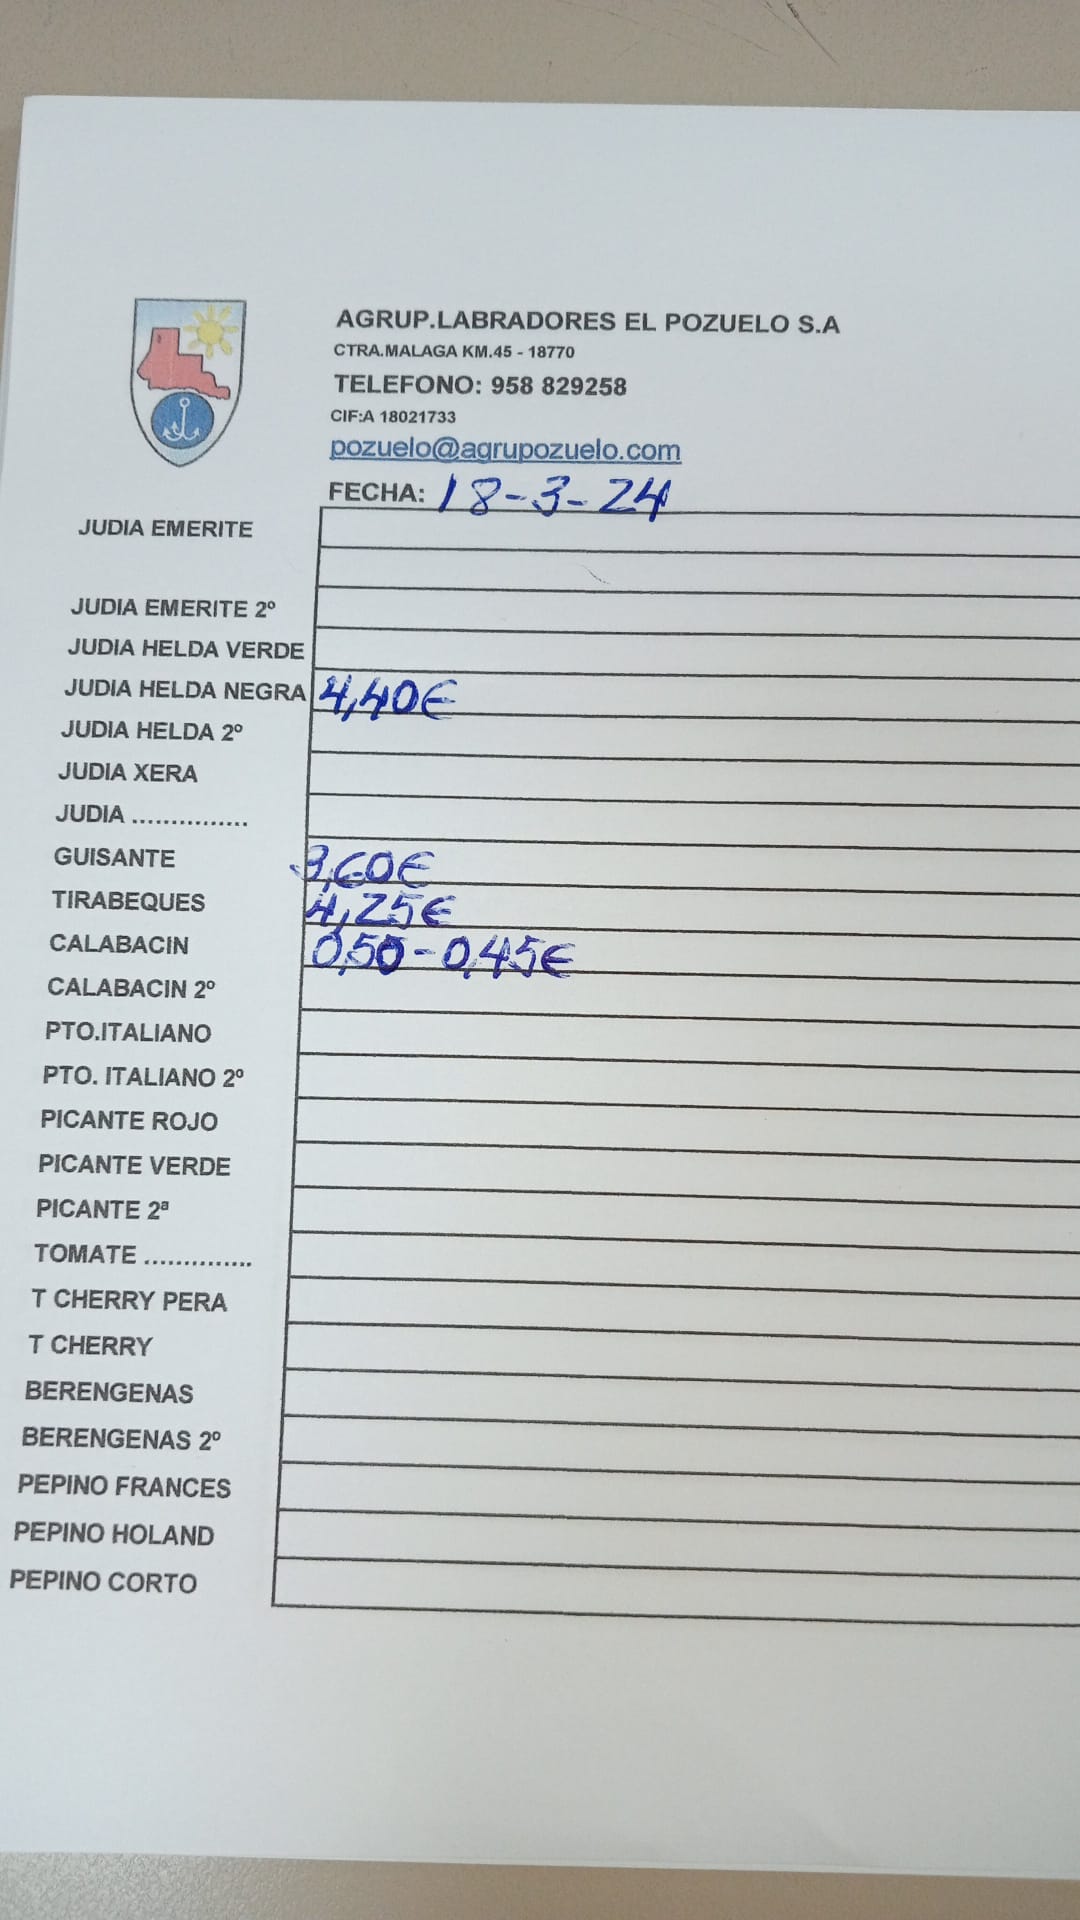 AGRUP.LABRADORES EL POZUELO S.A
CTRA.MALAGA KM.45 - 18770
TELEFONO: 958 829258
CIF:A 18021733
pozuelo@agrupozuelo.com
FECHA: 18-3-24
JUDIA EMERITE
JUDIA EMERITE 2º
JUDIA HELDA VERDE
JUDIA HELDA NEGRA 4,40€
JUDIA HELDA 2º
JUDIA XERA
JUDIA ...............
GUISANTE 3,60€
TIRABEQUES 4,25€
CALABACIN 0,50-0,45€
CALABACIN 2º
PTO.ITALIANO
PTO. ITALIANO 2º
PICANTE ROJO
PICANTE VERDE
PICANTE 2ª
TOMATE ..............
T CHERRY PERA
T CHERRY
BERENGENAS
BERENGENAS 2º
PEPINO FRANCES
PEPINO HOLAND
PEPINO CORTO